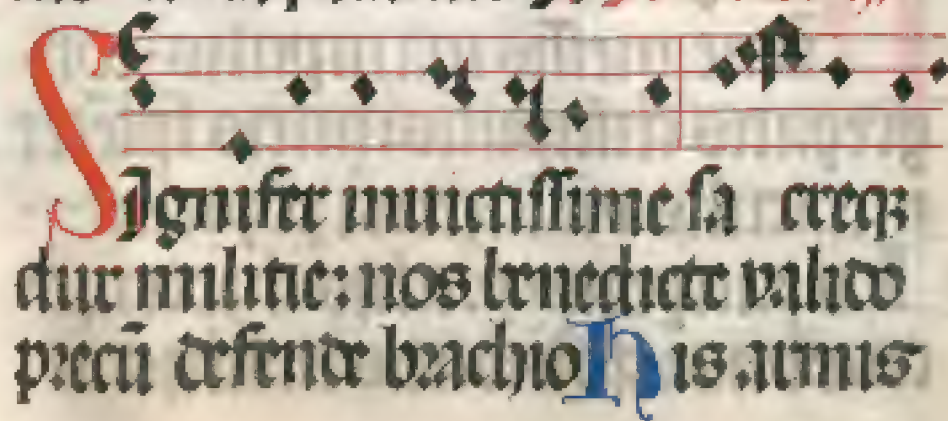 SIgnifer inuictissime sa creqꝫ
dux militie: nos benedicte valido
precū defende brachio His armis